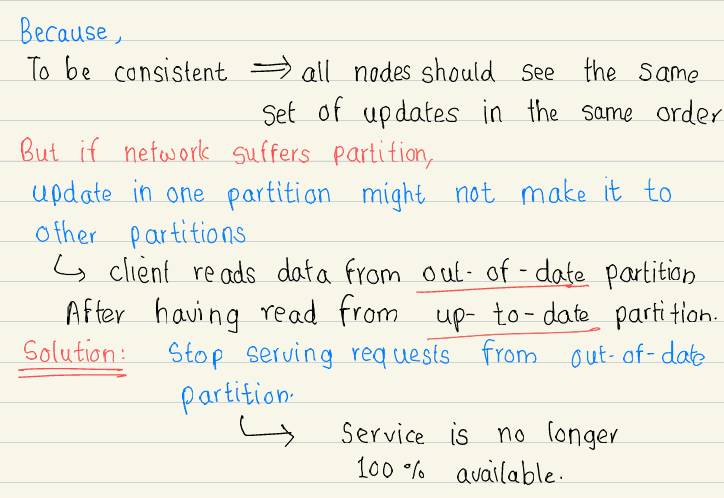 Because,
To be consistent ⟹ all nodes should see the same
set of updates in the same order
But if network suffers partition,
update in one partition might not make it to
other partitions
↳ client reads data from out-of-date partition
After having read from up-to-date partition.
Solution: Stop serving requests from out-of-date
partition.
↳ Service is no longer
100% available.